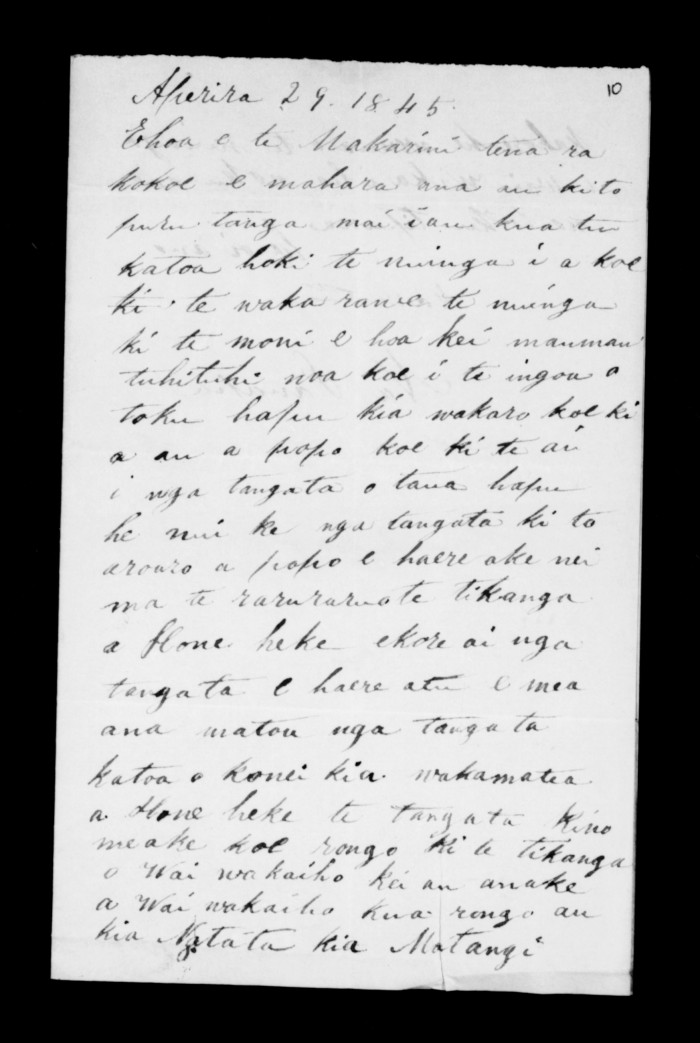 10
Aperira 29. 1845.
Ehoa e te Makarini tena ra
kokoe e mahara ana au ki to
puru tanga mai i au kua tu
katoa hoki te muinga i a koe
ki te waka rawe te muinga
ki te moni e hoa kei maumau
tuhituhi noa koe i te ingoa o
toku hapu kia wakaro koe ki
a au a popo koe ki te ai
i nga tangata o taua hapu
he nui ke nga tangata ki to
aroaro a popo e haere ake nei
ma te raruraru o te tikanga
a Hone heke ekore ai nga
tangata e haere atu e mea
ana matou nga tangata
katoa o konei kia wakamatea
a Hone heke te tangata kino
meake koe rongo ki te tikanga
o Wai wakaiho kei au anake
a Wai wakaiho kua rongo au
kia Ngatata kia Matangi